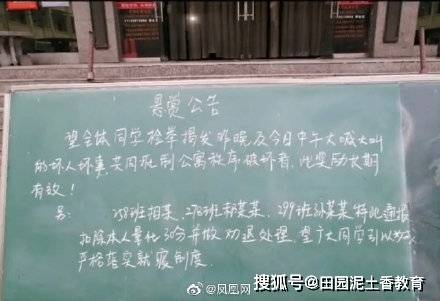 悬赏公告
望全体同学检举揭发昨晚及今日中午大喊大叫
的坏人坏事,共同抵制公寓秩序破坏者,此奖励长期
有效!
另: 258班相某、278班郭某某、299班孙某某特此通报
扣除本人量化30分并做劝退处理,望广大同学引以为戒
严格落实就寝制度.
@凤凰网
搜狐号@田园泥土香教育